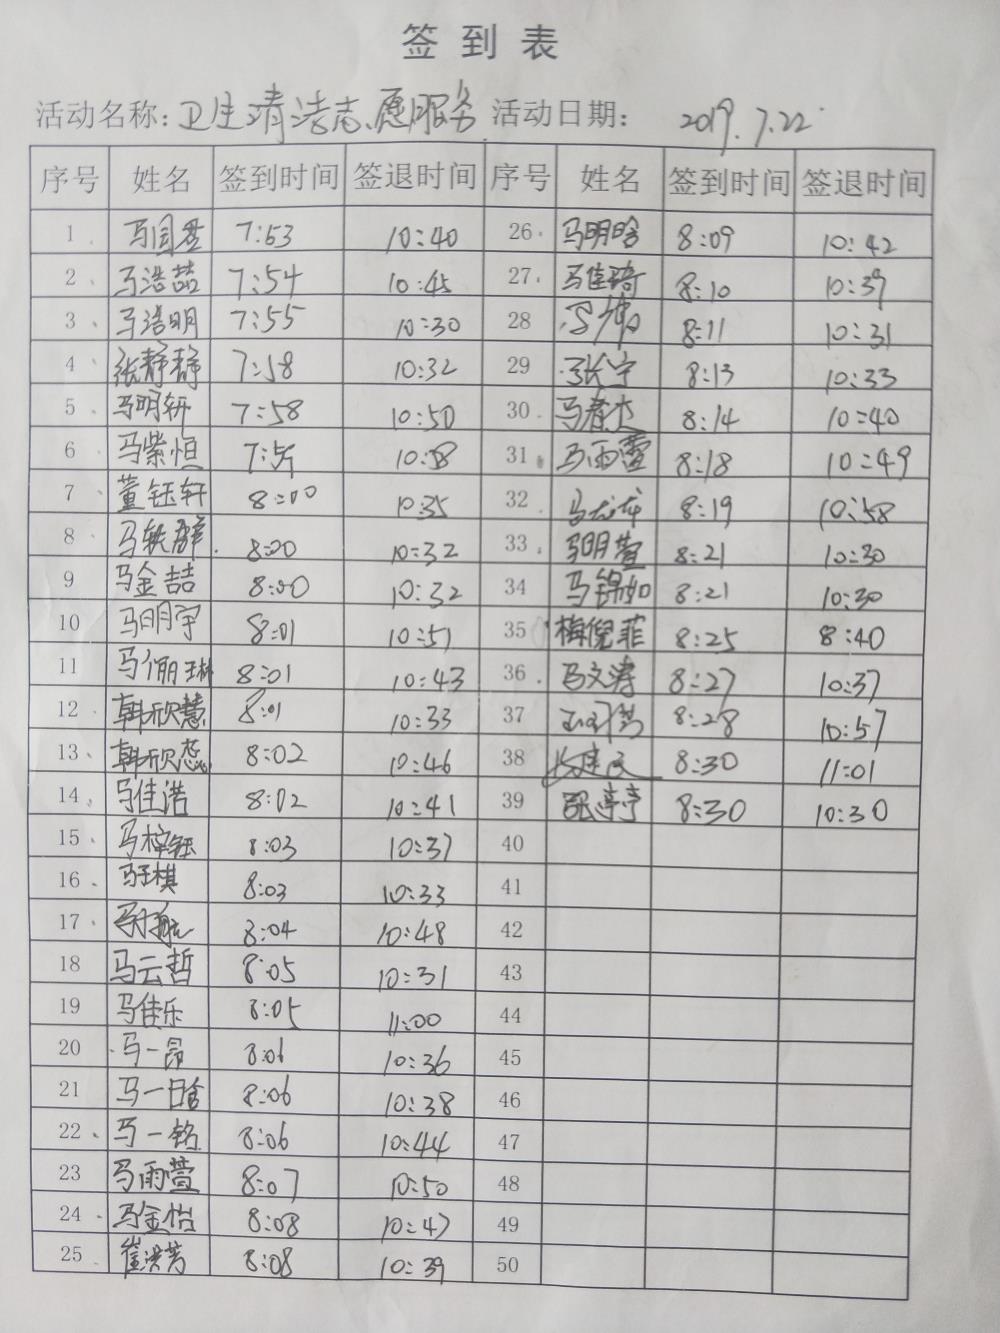 签到表
活动名称：卫生清洁志愿服务 活动日期： 2019.7.22
序号 姓名 签到时间 签退时间 序号 姓名 签到时间 签退时间
1 7:53 10:40 26 马明晗 8:09 10:42
2 马浩喆 7:54 10:45 27 马佳琦 8:10 10:39
3 马浩明 7:55 10:30 28 8:11 10:31
4 张静静 7:58 10:32 29 张宁 8:13 10:33
5 马明轩 7:58 10:50 30 8:14 10:40
6 马紫恒 10:38 31 马雨萱 8:18 10:49
7 董钰轩 8:00 10:35 32 8:19 10:58
8 马轶群 8:00 10:32 33 马明萱 8:21 10:30
9 马金喆 8:00 10:32 34 马锦如 8:21 10:30
10 马明宇 8:01 10:51 35 梅倪菲 8:25 8:40
11 马俪琳 8:01 10:43 36 马文涛 8:27 10:37
12 韩欣慧 8:01 10:33 37 8:28 10:57
13 韩欣蕊 8:02 10:46 38 8:30 11:01
14 马佳浩 8:02 10:41 39 张婷 8:30 10:30
15 马梓钰 8:03 10:37 40
16 8:03 10:33 41
17 8:04 10:48 42
18 马云哲 8:05 10:31 43
19 马佳乐 8:05 11:00 44
20 马一昂 8:06 10:36 45
21 马一晗 8:06 10:38 46
22 马一铭 8:06 10:44 47
23 马雨萱 8:07 10:50 48
24 马金怡 8:08 10:47 49
25 崔洪芳 8:08 10:39 50